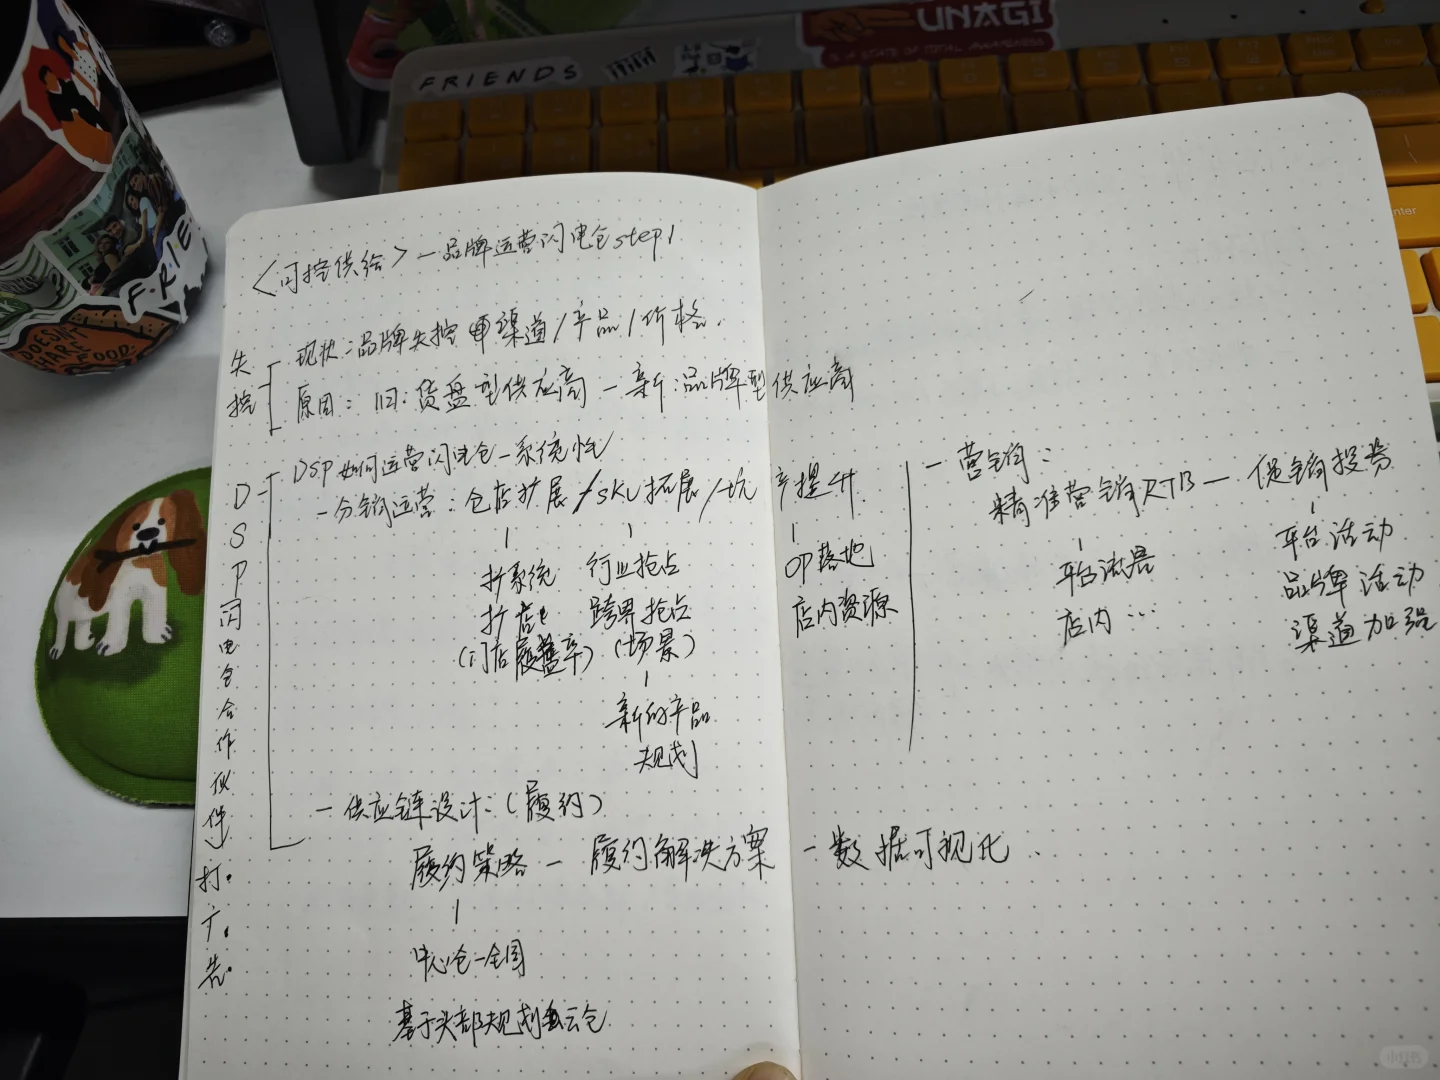 UNAGI
IS A STATE OF TOTAL AWARENESS
FRIENDS
enter
FRIE
DOESN'T
SHARE
FOOD
<可控供给>—品牌运营闪电仓step1
失控
现状:品牌失控 渠道/产品/价格.
原因:旧:货盘型供应商—新:品牌型供应商
DSP闪电仓合作伙伴打广告
DSP如何运营闪电仓—系统性
-分销运营:仓店扩展/SKU拓展/坑产提升
扩系统 行业抢占 OP落地
扩店 跨界抢占 店内资源
(门店覆盖率) (场景)
新的产品
规划
-营销:
精准营销RTB—促销投券
平台流量 平台活动
店内… 品牌活动
渠道加强
-供应链设计:(履约)
履约策略—履约解决方案—数据可视化
中心仓—全国
基于头部规划云仓
小红书